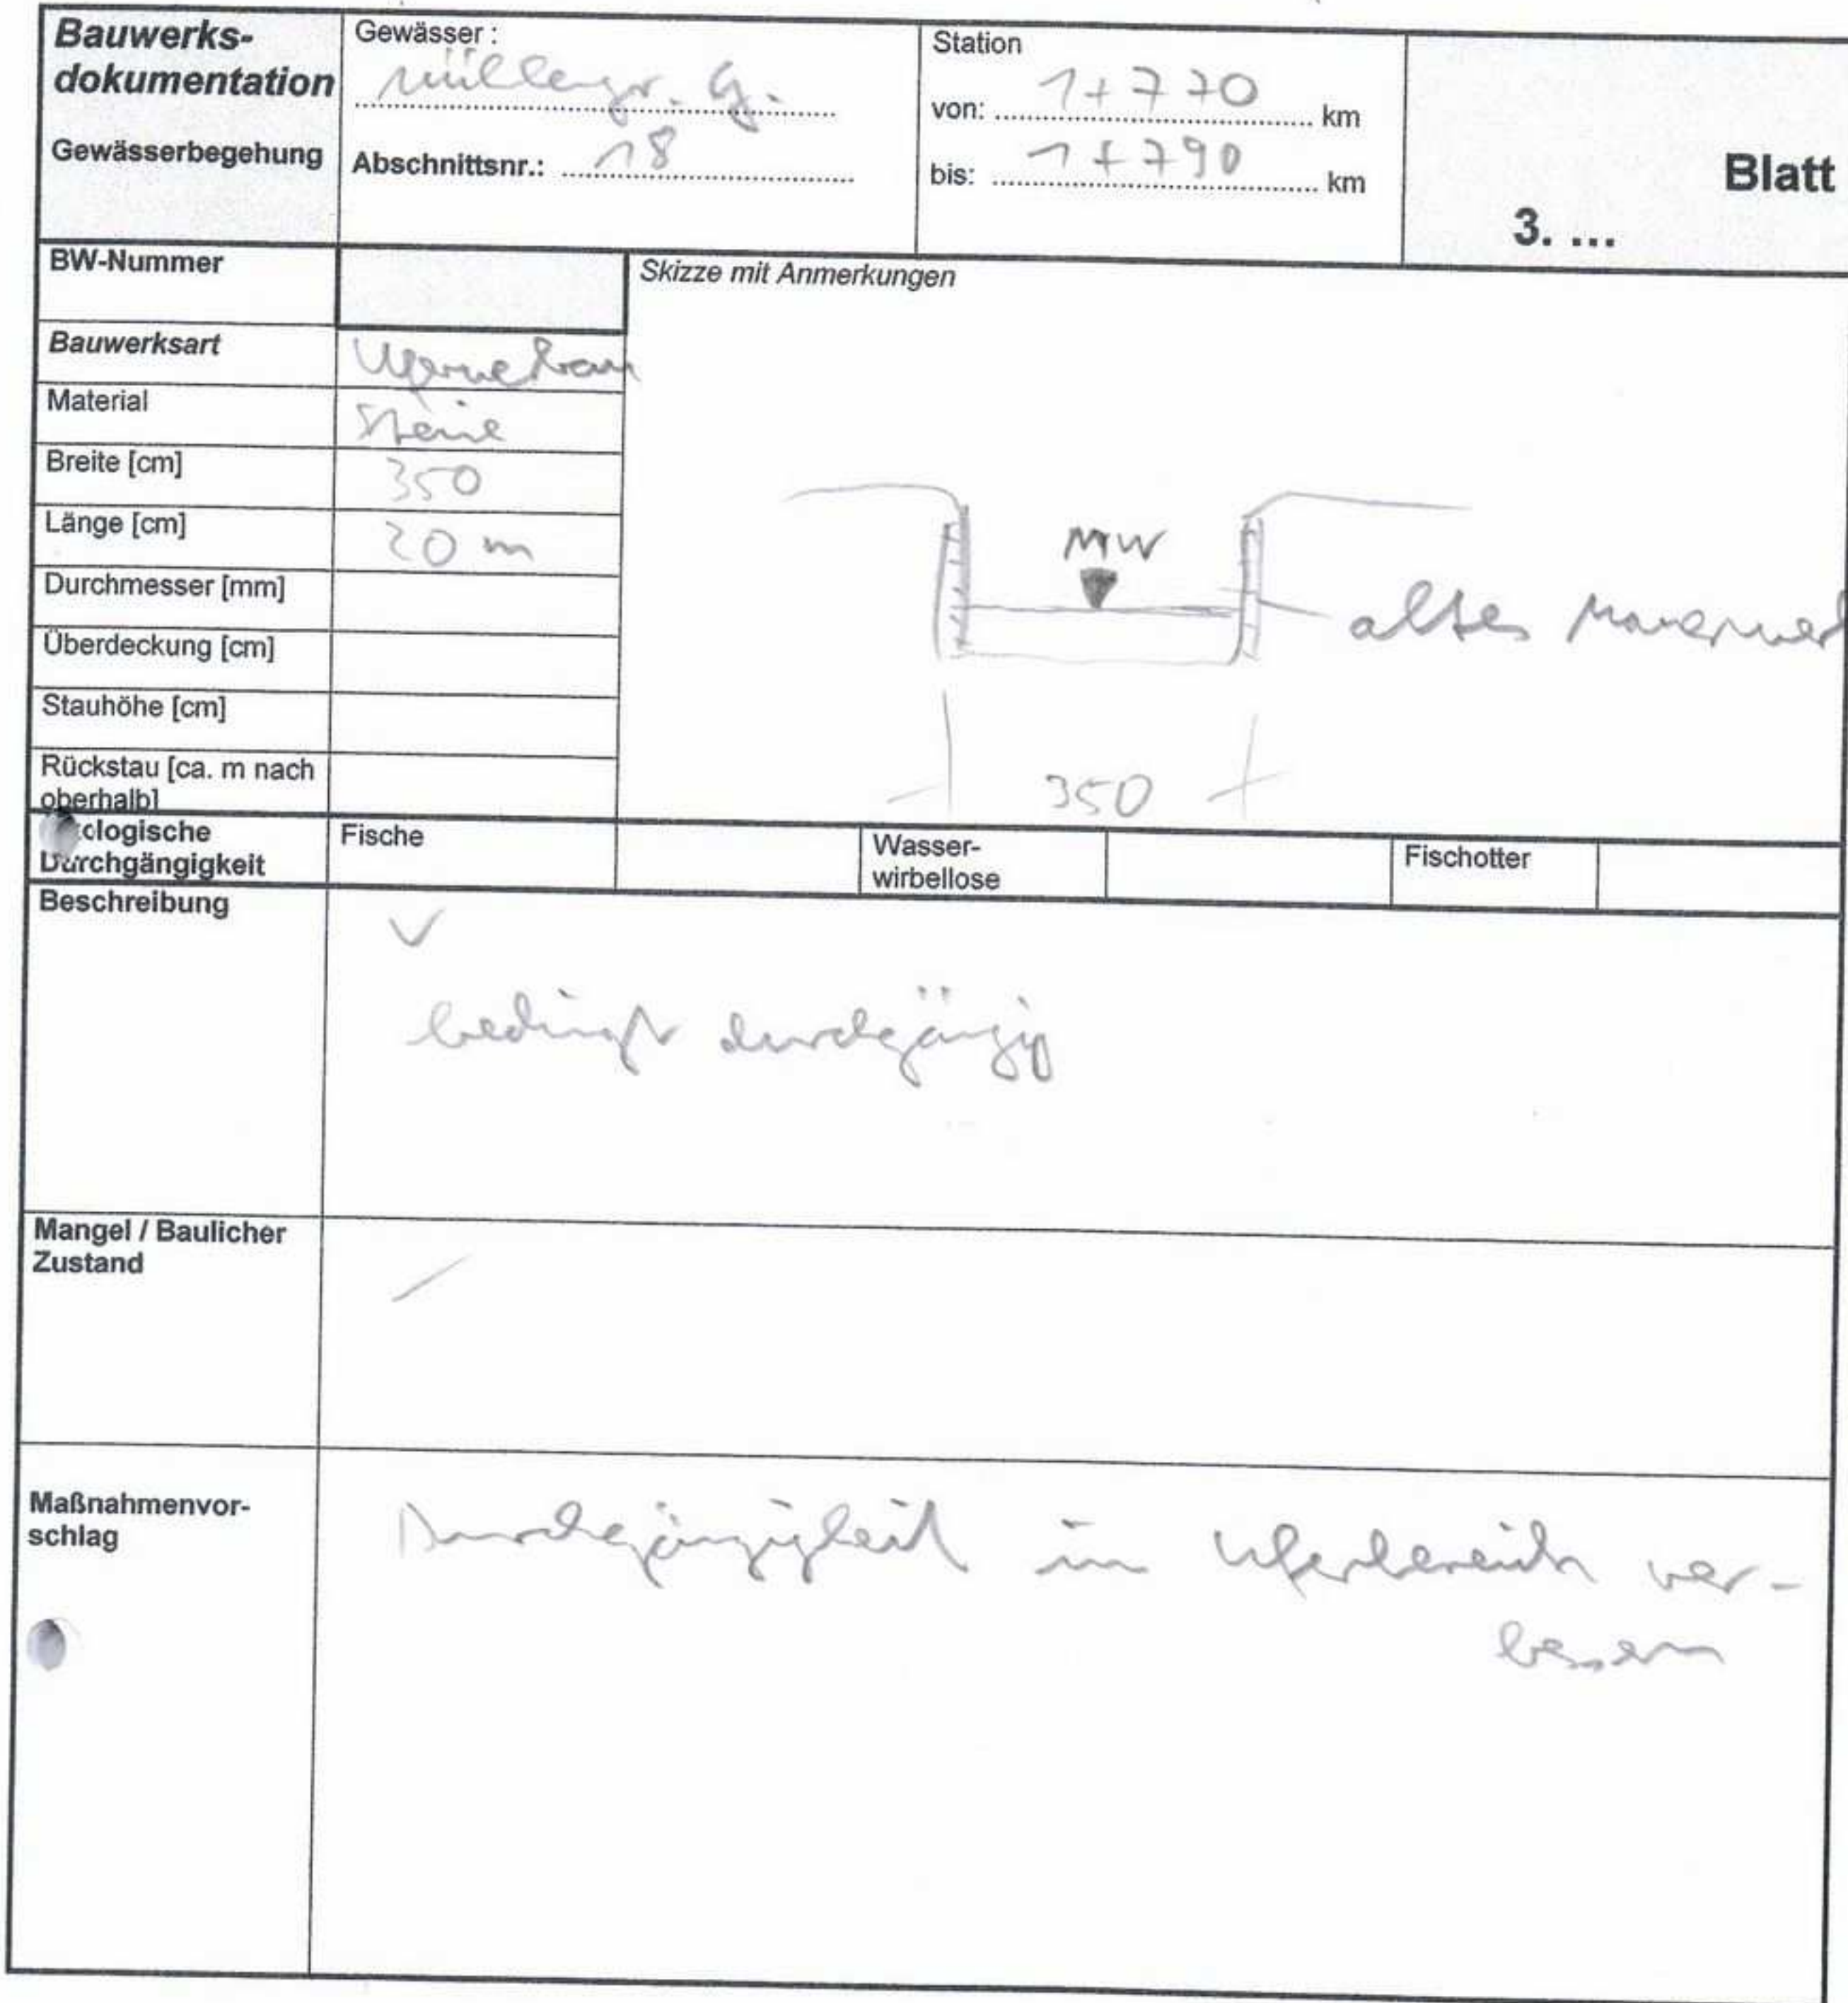 Bauwerks-
dokumentation
Gewässerbegehung
Gewässer :
Abschnittsnr.: 18
Station
von: 1+770 km
bis: 1+790 km
Blatt
3. ...
BW-Nummer
Skizze mit Anmerkungen
Bauwerksart
Material Steine
Breite [cm] 350
Länge [cm] 20 m
Durchmesser [mm]
Überdeckung [cm]
Stauhöhe [cm]
Rückstau [ca. m nach
oberhalb]
MW
altes Mauerwerk
350
ologische
Durchgängigkeit
Fische
Wasser-
wirbellose
Fischotter
Beschreibung
bedingt durchgängig
Mangel / Baulicher
Zustand
Maßnahmenvor-
schlag
Durchgängigkeit im Uferbereich ver-
bessern